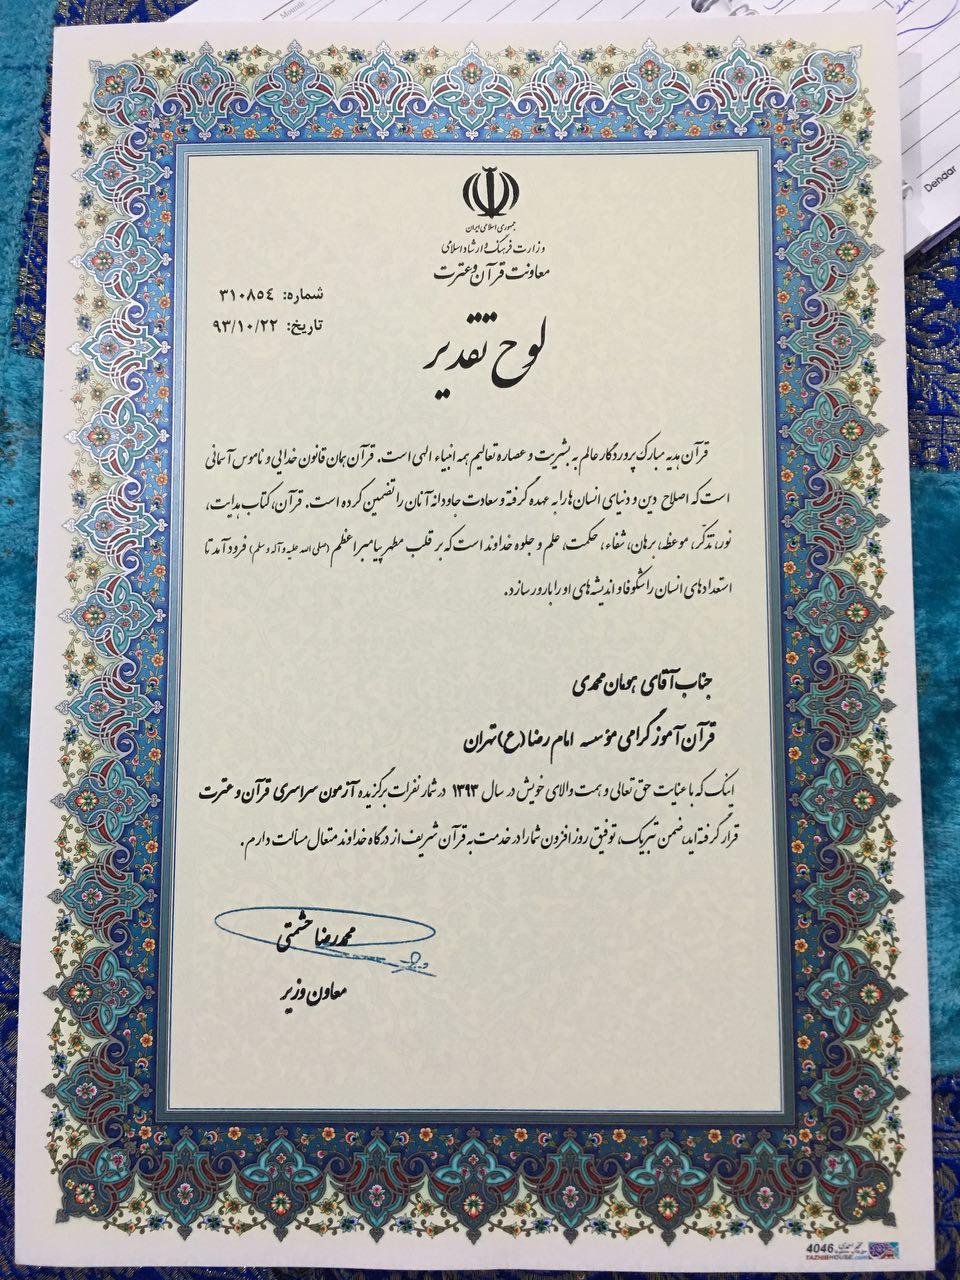 جمهوری اسلامی ایران
وزارت فرهنگ و ارشاد اسلامی
معاونت قرآن و عترت
شماره: ۳۱۰۸۵۴
تاریخ: ۹۳/۱۰/۲۲
لوح تقدیر
قرآن هدیه مبارک پروردگار عالم به بشریت و عصاره تعالیم همه انبیاء الهی است. قرآن همان قانون خدایی و ناموس آسمانی
است که اصلاح دین و دنیای انسان ها را به عهده گرفته و سعادت جاودانه آنان را تضمین کرده است. قرآن، کتاب هدایت،
نور، تذکر، موعظه، برهان، شفاء، حکمت، علم و جلوه خداوند است که بر قلب مطهر پیامبر اعظم (صلی الله علیه و آله و سلم) فرود آمد تا
استعدادهای انسان را شکوفا و اندیشه های او را بارور سازد.
جناب آقای هومان محمدی
قرآن آموز گرامی مؤسسه امام رضا (ع) تهران
اینک که با عنایت حق تعالی و همت والای خویش در سال ۱۳۹۳ در شمار نفرات برگزیده آزمون سراسری قرآن و عترت
قرار گرفته اید، ضمن تبریک، توفیق روز افزون شما را در خدمت به قرآن شریف از درگاه خداوند متعال مسألت دارم.
محمدرضا حشمتی
معاون وزیر
4046
TAZHIBHOUSE.com
Denaar